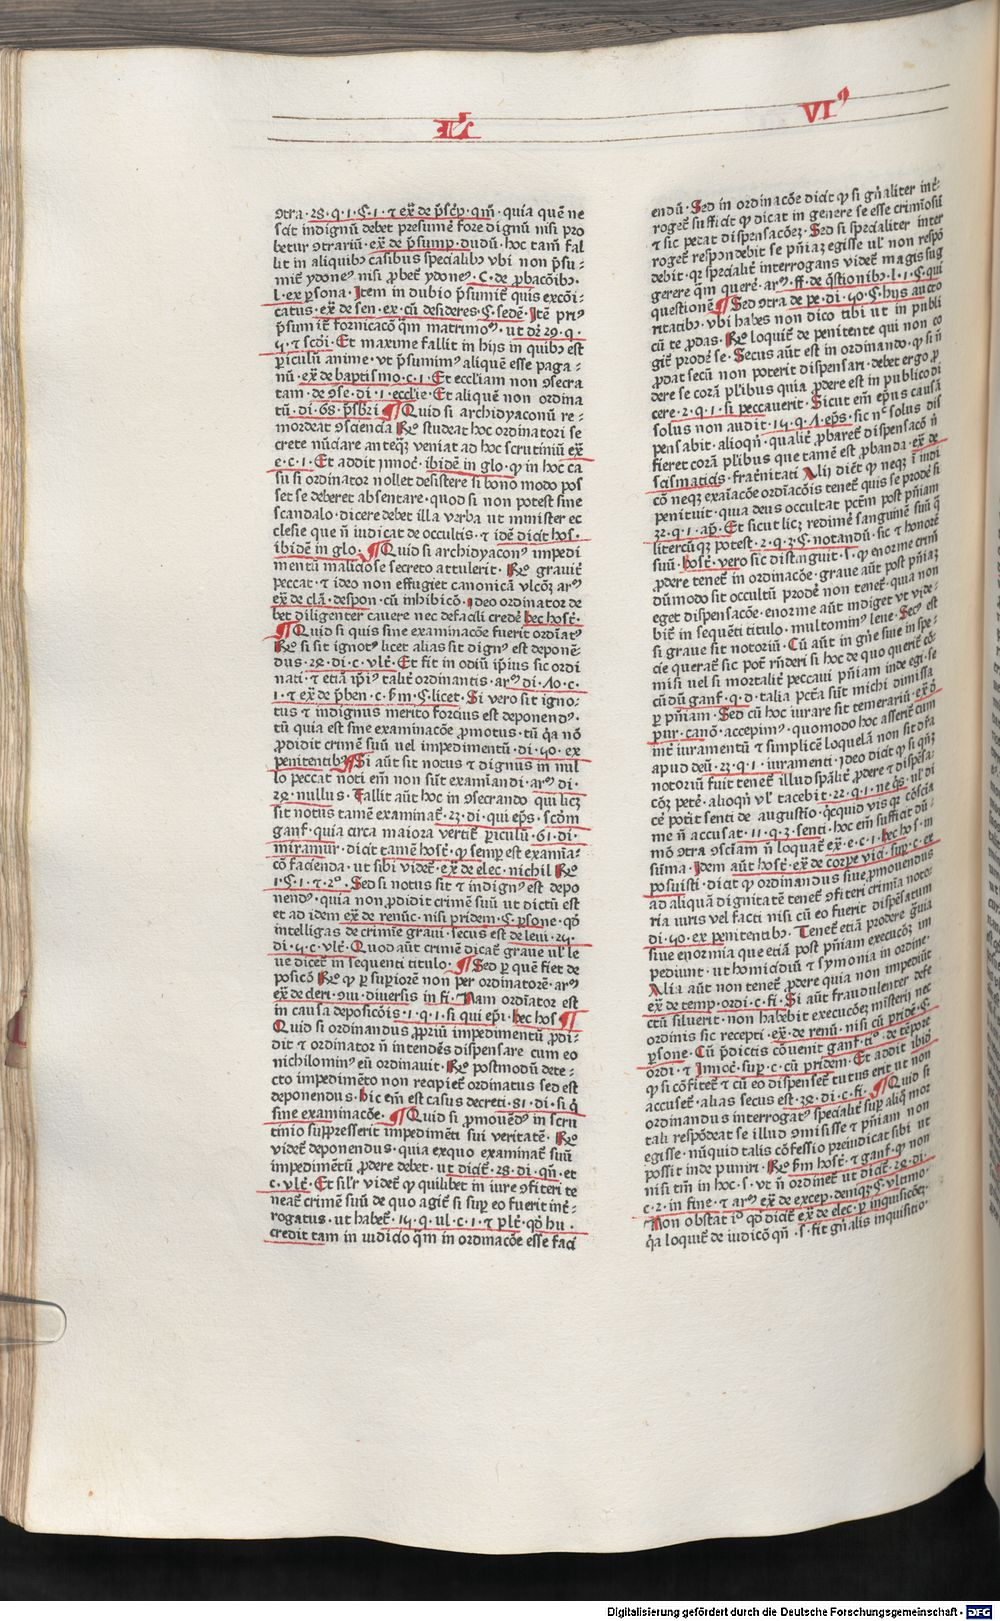 L'
VIꝰ
ↄtra · 28 · q · 1 · C · 1 · ⁊ ex̄ de p̄scꝛip · qm̄ · quia quē ne
scit indignū debet presumē fore dignū nisi pro
betur ↄtrariū · ex̄ de p̄sump · dudū · hoc tam̄ fal
lit in aliquibꝰ casibus specialibꝰ vbi non p̄su-
mit̄ ydoneꝰ nisi ꝓbet̄ ydoneꝰ · C · de ꝓbacōibꝰ ·
l · ex ꝑsona · Item in dubio p̄sumit̄ quis excōi-
catus · ex̄ de sen · ex · cū desideres · C · sedē · Itē priꝰ
p̄sumit̄ fornicacō q̄m matrimoꝰ · ut dꝛ 29 · q ·
5 · ⁊ scd̄i · Et maxime fallit in hijs in quibꝰ est
ꝑiculū anime · vt p̄sumimꝰ aliquē esse paga-
nū · ex̄ de baptismo · c · 1 · Et eccliam non ↄsecra
tam · de ↄse · di · 1 · ecclie · Et aliquē non ordina
tū · di · 68 · p̄sbr̄i ¶ Quid si archidyaconū re-
mordeat ↄsciencia Rō studeat hoc ordinatori se
crete nūciare anteqꝫ veniat ad hoc scrutiniū ex̄
e · c · 1 · Et addit ȷnnoc̄ · ibidē in glo · ꝙ in hoc ca
su si ordinator nollet desistere si bono modo pos
set se deberet absentare · quod si non potest sine
scandalo · dicere debet illa verba ut minister ec
clesie que n̄ iudicat de occultis · ⁊ idē dicit hos ·
ibidē in glo · ¶ Quid si archidyaconꝰ impedi
mentū maliciose secreto attulerit · Rō grauit̄
peccat · ⁊ ideo non effugiet canonicā vlcōꝫ arꝰ
ex̄ de clā · despon · cū inhibicō · ideo ordinator de
bet diligenter cauere nec defacili credē hec host̄ ·
¶ Quid si quis sine examinacōe fuerit ordīatꝰ
Rō si sit ignotꝰ licet alias sit dignꝰ est deponē-
dus · 28 · di · c · vlt̄ · Et fit in odiū ip̄ius sic ordi
nati · ⁊ etiā ip̄iꝰ talit̄ ordinantis · arꝰ di · 10 · c ·
1 · ⁊ ex̄ de p̄ben · c · s̄m · C · licet · Si vero sit igno-
tus ⁊ indignus merito forcius est deponendꝰ ·
tū quia est sine examinacōe ꝓmotus · tū q̄a nō
ꝓdidit crimē suū vel impedimentū · di · 50 · ex
penitentibꝰ ¶ Si aūt sit notus ⁊ dignus in nul
lo peccat noti em̄ non sūt examinandi · arꝰ di ·
28 · nullus · Fallit aūt hoc in ↄsecrando qui licꝫ
sit notus tamē examinat̄ · 23 · di · qui ep̄s · scd̄m
gauf̄ · quia circa maiora vertit̄ ꝑiculū · 61 · di ·
miramur · dicit tamē host̄ · ꝙ semꝑ est examīa-
cō facienda · ut sibi videt̄ · ex̄ de elec · nichil Rō
1 · C · 1 · ⁊ · 2º · Sed si notus sit ⁊ indignꝰ est depo
nendꝰ · quia non ꝓdidit crimē suū ut dictū est
et ad idem ex̄ de renūc · nisi pridem · C · ꝑsone · qd̄
intelligas de crimīe graui · secus est de leui · 25 ·
di · 5 · c · vlt̄ · Quod aūt crimē dicat̄ graue ul' le
ue dicet̄ in sequenti titulo · ¶ Sed ꝑ quē fiet de
posicō Rō ꝙ ꝑ suꝑiorē non per ordinatorē · arꝰ
ex̄ de cleri · ↄiu · diuersis in fi · Nam ordiator est
in causa deposicōis · 1 · q · 1 · si qui ep̄i · hec hos ¶
Quid si ordinandus ꝓpriū impedimentū ꝓdi-
dit ⁊ ordinator n̄ intendēs dispensare cum eo
nichilominꝰ eū ordinauit · Rō postmodū dete-
cto impedimēto non recipiet̄ ordinatus sed est
deponendus · hic em̄ est casus decreti · 81 · di · si q̄
sine examinacōe · ¶ Quid si ꝓmouēdꝰ in scru
tinio suppresserit impedimēti sui veritatē · Rō
videt̄ deponendus · quia exquo examinat̄ suū
impedimētū ꝓdere debet · ut dicit̄ · 28 · di · qn̄ · et
c · vlt̄ · Et silr̄ videt̄ ꝙ quilibet in iure ↄfiteri te
neat̄ crimē suū de quo agit̄ si suꝑ eo fuerit int̄-
rogatus · ut habet̄ · 15 · q · ul · c · 1 · ⁊ plēt̄ · qd̄ hu ·
credit tam in iudicio q̄m in ordinacōe esse faci
endū · Sed in ordinacōe dicit ꝙ si gn̄aliter int̄-
roget̄ sufficit ꝙ dicat in genere se esse crimīosū
⁊ sic petat dispensacōeꝫ · Sed si sꝑcialiter inter
roget̄ respondebit se pn̄iaꝫ egisse ul' non respō
debit · qꝛ sꝑcialit̄ interrogans videt̄ magis sug
gerere q̄m querē · arꝰ · ff · de q̄stionibꝰ · l · 1 · C · qui
questionē ¶ Sed ↄtra de pe · di · 50 · C · hijs aucto
ritatibꝰ · vbi habes non dico tibi ut in publi
cū te ꝓdas · Rō loquit̄ de penitente qui non co
git̄ prodē se · Secus aūt est in ordinando · ꝙ si n̄
ꝓdat secū non poterit dispensari · debet ergo ꝓ
dere se corā pl̄ibus quia ꝓdere est in publico di
cere · 2 · q · 1 · si peccauerit · Sicut em̄ ep̄us causā
solus non audit · 15 · q · 1 · ep̄s · sic nᶜ solus dis
pensabit · alioqn̄ · qualit̄ ꝓbaret̄ dispensacō n̄
fieret corā pl̄ibus que tamē est ꝓbanda · ex̄ de
scismaticis · frat̄nitati Alij dicūt ꝙ neqꝫ ī iudi
cō neqꝫ exaīacōe ordīacōis tenet̄ quis se prodē si
penituit · quia deus occultat pctm̄ post pn̄iam
32 · q · 1 · ap̄ · Et sicut licꝫ redimē sanguinē suū q̄
litercūqꝫ potest · 2 · q · 3 · C · notandū · sic ⁊ honorē
suū · host̄ · vero sic distinguit · s · ꝙ enorme crim̄
ꝓdere tenet̄ in ordinacōe · graue aūt post pn̄iaꝫ
dūmodo sit occultū prodē non tenet̄ · quia non
eget dispensacōe · enorme aūt indiget vt vide-
bit̄ in sequēti titulo · multominꝰ leue · Secꝰ est
si graue sit notoriū · Cū aūt in gn̄e siue in spe-
cie querat̄ sic pot̄ rn̄deri si hoc de quo querit̄ cō-
misi vel si mortalit̄ peccaui pn̄iam inde egi · se
cūdū gauf̄ · q · d · talia pctā sūt michi dimissa
ꝑ pn̄iam · Sed cū hoc iurare sit temerariū · ex̄ d̄
pur · canō · accepimꝰ · quomodo hoc asserit̄ cum
int̄ iuramentū ⁊ simplicē loquelā non sit dr̄a
apud deū · 22 · q · 1 · iuramenti · ȷdeo dicit ꝙ si qn̄ꝫ
notoriū fuit tenet̄ illud spālit̄ ꝓdere ⁊ dispēsa-
cōꝫ petē · alioqn̄ vl' tacebit · 22 · q · 1 · ne qs̄ · ul' di
cē potit senti de augustio · q̄cquid vis qꝛ cōscia
me n̄ accusat · 11 · q · 3 · senti · hoc em̄ sufficit dū-
mō ↄtra ↄsciam n̄ loquat̄ ex̄ · e · c · 1 · hec hos · in
sūma · Idem aūt host̄ · ex̄ de corpe vici · suꝑ · c · ex
posuisti · dicit ꝙ ordinandus siue ꝓmouendus
ad aliquā dignitatē tenet̄ ↄfiteri crimīa noto-
ria iuris vel facti nisi cū eo fuerit dispēsatum
di · 50 · ex penitentibꝰ · Tenet̄ etiā prodere gr̄auia
siue enormia que etiā post pn̄iam execucōꝫ im
pediunt · ut homicidiū ⁊ symonia in ordine ·
Alia aūt non tenet̄ ꝓdere quia non impediūt
ex̄ de temp · ordi · c · fi · Si aūt fraudulenter defe
ctū siluerit · non habebit execucōeꝫ misterij nec
ordinis sic recepti · ex̄ · de renū · nisi cū pridē · C ·
ꝑsone · Cū p̄dictis cōuenit gauf · tiº · de tēpore
ordi · ⁊ ȷnnoc̄ · suꝑ · c · cū pridem · Et addit ibid̄
ꝙ si cōfitet̄ ⁊ cū eo dispenset̄ tutus erit ut non
accuset̄ · alias secus est · 38 · di · c · fi · ¶ Quid si
ordinandus interrogatꝰ specialit̄ suꝑ aliqͦ mor
tali respōdeat se illud ↄmisisse ⁊ pn̄iam non
egisse · nūquid talis cōfessio preiudicat sibi ut
possit inde puniri · Rō s̄m host̄ · ⁊ gauf · ꝙ non
nisi tm̄ in hoc · s · vt n̄ ordinet̄ ut dicit̄ · 28 · di ·
c · 2 · in fine · ⁊ arꝰ ex̄ de excep · deniqꝫ · C · vltimo ·
Non obstat iº qd̄ dicit̄ ex̄ de elec · ꝑ inquisicōeꝫ ·
q̄a loquit̄ de iudicō qn̄ · s · fit gn̄alis inquisicio ·
Digitalisierung gefördert durch die Deutsche Forschungsgemeinschaft - DFG